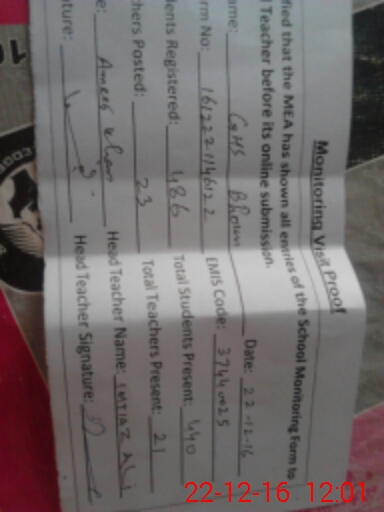 Monitoring Visit Proof
fied that the MEA has shown all entries of the School Monitoring Form to
d Teacher before its online submission.
ame: GHS Date: 22-12-16
rm No: EMIS Code:
ents Registered: 486 Total Students Present: 440
hers Posted: 23 Total Teachers Present: 21
e: Head Teacher Name: IMTIAZ ALi
ture: Head Teacher Signature:
22-12-16 12:01